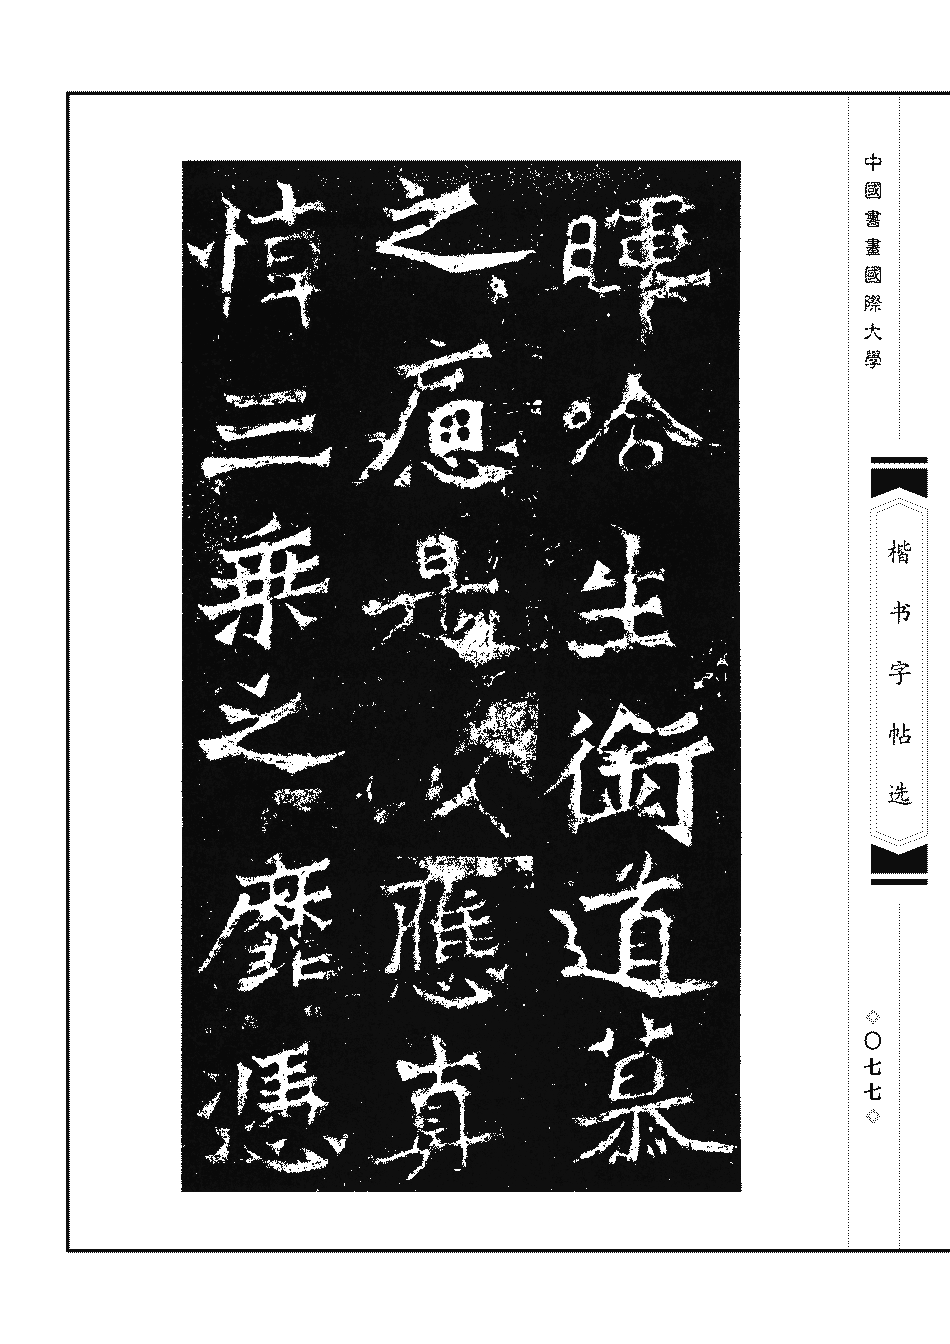 中國書畫國際大學
楷书字帖选
◇〇七七◇
暉哈生銜道慕
之是以應真
悼三乘之靡憑